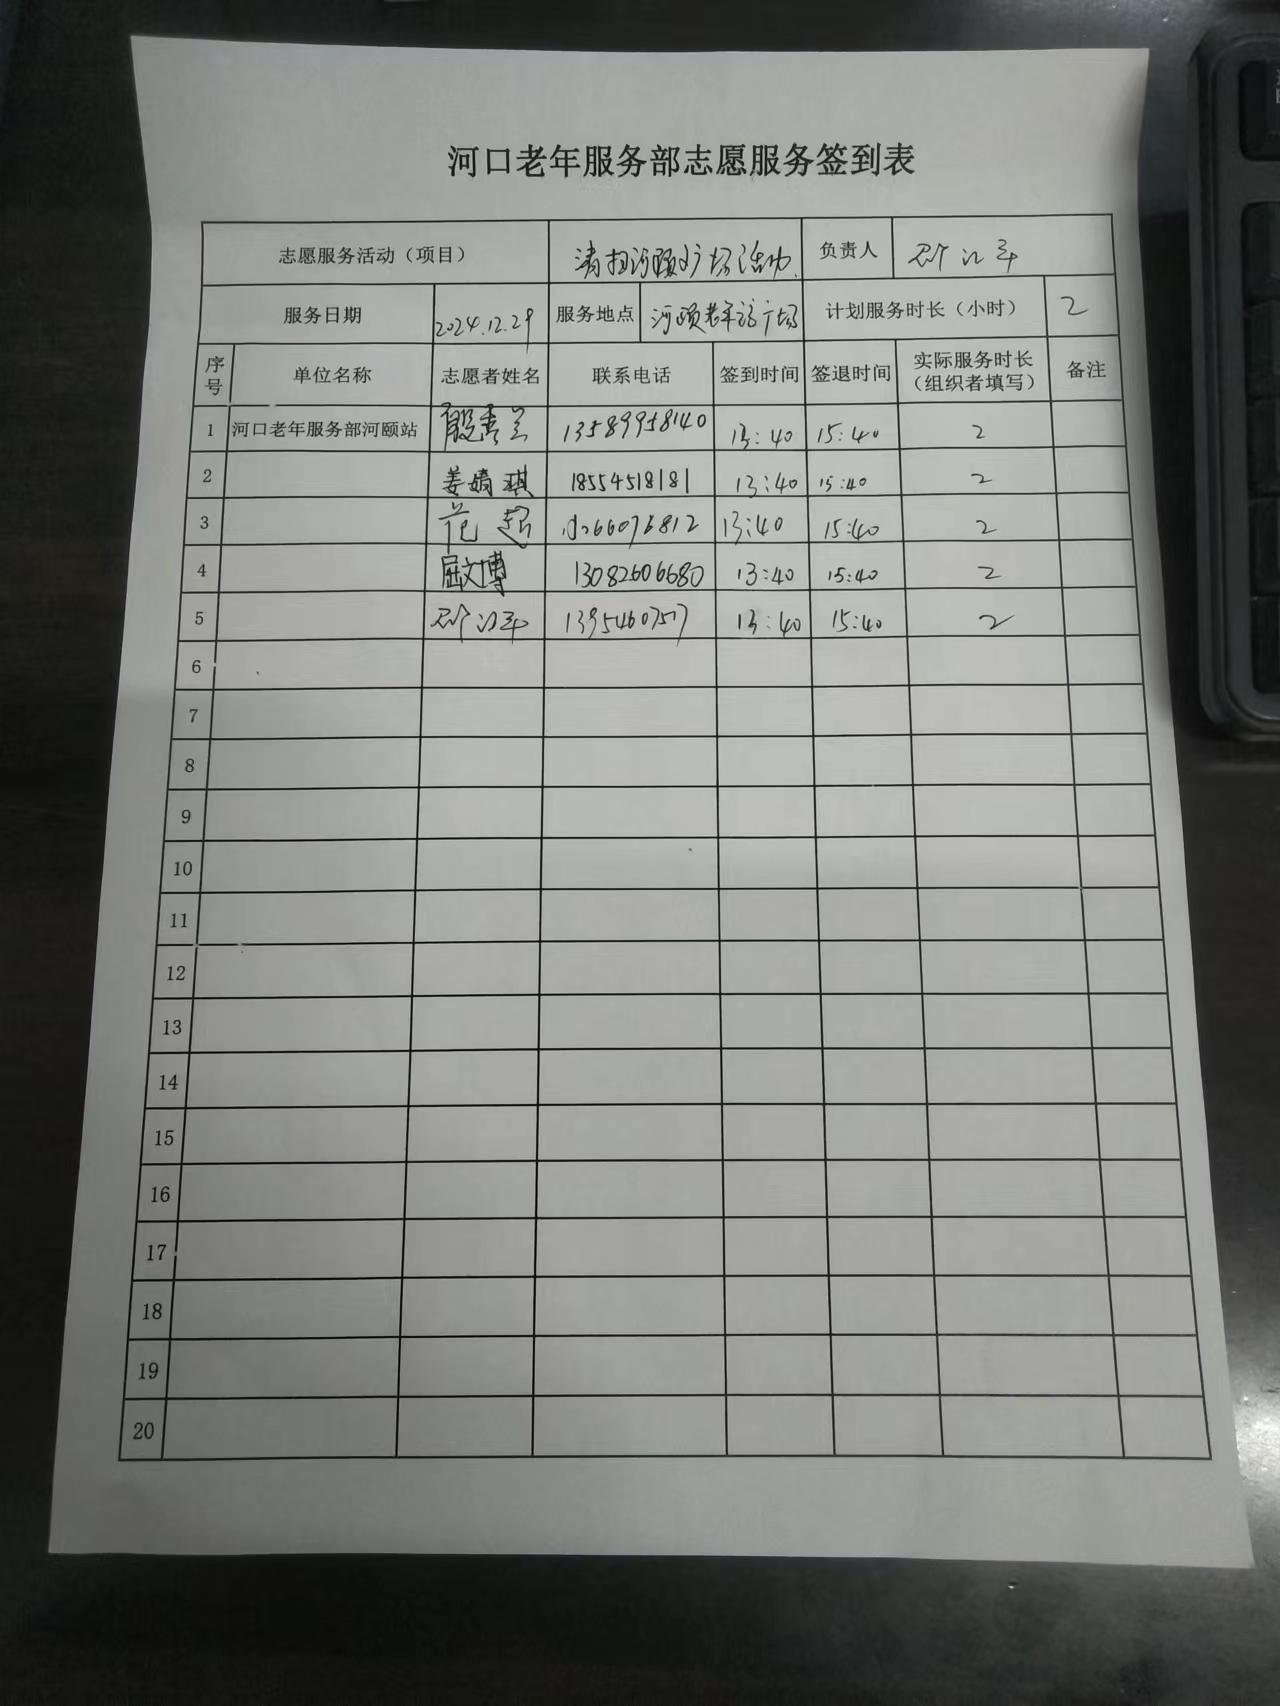 河口老年服务部志愿服务签到表
志愿服务活动（项目） 清扫河颐广场活动. 负责人
服务日期 2024.12.29 服务地点 河颐老年广场 计划服务时长（小时） 2
序号 单位名称 志愿者姓名 联系电话 签到时间 签退时间 实际服务时长（组织者填写） 备注
1 河口老年服务部河颐站 殷秀兰 13589958140 13:40 15:40 2
2 姜婧琪 18554518181 13:40 15:40 2
3 范超 13:40 15:40 2
4 屈文博 13082606680 13:40 15:40 2
5 13954607517 13:40 15:40 2
6
7
8
9
10
11
12
13
14
15
16
17
18
19
20